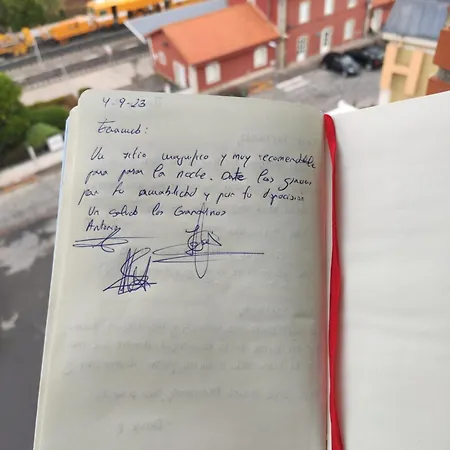 4-9-23
Un sitio magnifico y muy recomendable
para pasar la noche. las gracias
por tu amabilidad y por tu disposición
Un saludo los
Antonio
José